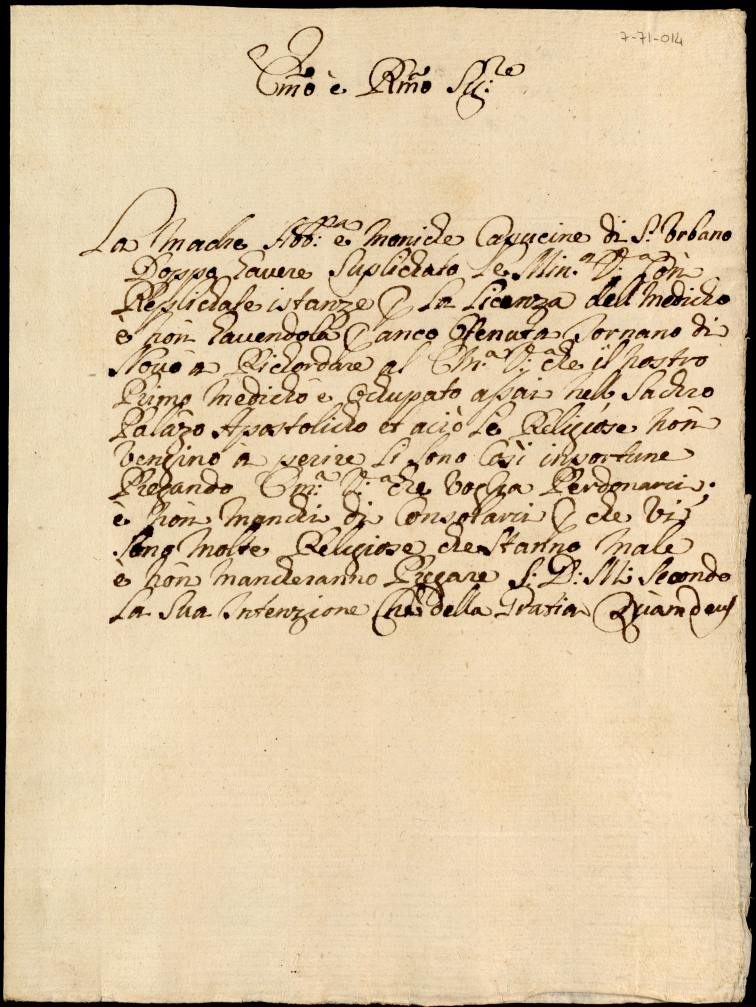 7-71-014
Em̃o è Rm̃o Sig:re
La Madre Abb:a è Moniche Capucine di S: Urbano
Doppo havere Suplichato Le Min:a V:a Con
Replichate istanze p La Licenza dell Medicho
è non havendola p anco Otenuta Tornano di
Novo a Richordare al Em:a V:a che il nostro
Primo Medicho è Ochupato assai nell Sachro
Palazo Apostolicho et aciò Le Religiose non
venghino a perire Li sono Così inportune
Pregando Em:a V:a che voglia Perdonarci;
è non manchi di Consolarci p che Vi
Sono Molte Religiose che Stanno male
è non mancheranno Pregare S: D: M: Secondo
La Sua Intenzione Che della Gratia Quam deus